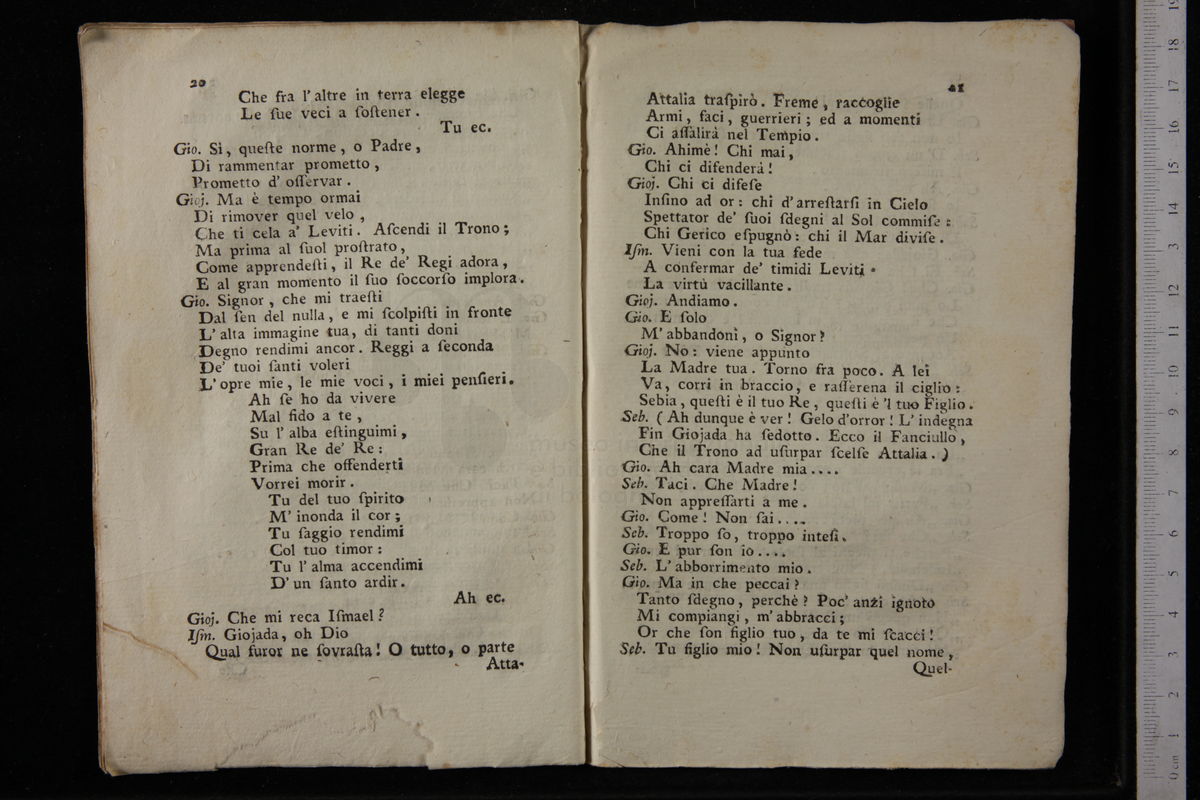 20
Che fra l'altre in terra elegge
Le ſue veci a ſoſtener.
Tu ec.
Gio. Sì, queſte norme, o Padre,
Di rammentar prometto,
Prometto d' oſſervar.
Gioj. Ma è tempo ormai
Di rimover quel velo,
Che ti cela a' Leviti. Aſcendi il Trono;
Ma prima al ſuol proſtrato,
Come apprendeſti, il Re de' Regi adora,
E al gran momento il ſuo ſoccorſo implora.
Gio. Signor, che mi traeſti
Dal ſen del nulla, e mi ſcolpiſti in fronte
L' alta immagine tua, di tanti doni
Degno rendimi ancor. Reggi a ſeconda
De' tuoi ſanti voleri
L' opre mie, le mie voci, i miei penſieri.
Ah ſe ho da vivere
Mal fido a te,
Su l' alba eſtinguimi,
Gran Re de' Re:
Prima che offenderti
Vorrei morir.
Tu del tuo ſpirito
M' inonda il cor;
Tu ſaggio rendimi
Col tuo timor:
Tu l' alma accendimi
D' un ſanto ardir.
Ah ec.
Gioj. Che mi reca Iſmael?
Iſm. Giojada, oh Dio
Qual furor ne ſovraſta! O tutto, o parte
Atta-
21
Attalia traſpirò. Freme, raccoglie
Armi, faci, guerrieri; ed a momenti
Ci aſſalirà nel Tempio.
Gio. Ahimè! Chi mai,
Chi ci difenderà!
Gioj. Chi ci difeſe
Inſino ad or: chi d'arreſtarſi in Cielo
Spettator de' ſuoi ſdegni al Sol commiſe:
Chi Gerico eſpugnò: chi il Mar diviſe.
Iſm. Vieni con la tua fede
A confermar de' timidi Leviti
La virtù vacillante.
Gioj. Andiamo.
Gio. E ſolo
M' abbandoni, o Signor?
Gioj. No: viene appunto
La Madre tua. Torno fra poco. A lei
Va, corri in braccio, e raſſerena il ciglio:
Sebia, queſti è il tuo Re, queſti è 'l tuo Figlio.
Seb. (Ah dunque è ver! Gelo d'orror! L' indegna
Fin Giojada ha ſedotto. Ecco il Fanciullo,
Che il Trono ad uſurpar ſcelſe Attalia.)
Gio. Ah cara Madre mia....
Seb. Taci. Che Madre!
Non appreſſarti a me.
Gio. Come! Non ſai....
Seb. Troppo ſo, troppo inteſi.
Gio. E pur ſon io....
Seb. L' abborrimento mio.
Gio. Ma in che peccai?
Tanto ſdegno, perchè? Poc' anzi ignoto
Mi compiangi, m' abbracci;
Or che ſon figlio tuo, da te mi ſcacci!
Seb. Tu figlio mio! Non uſurpar quel nome,
Quel-